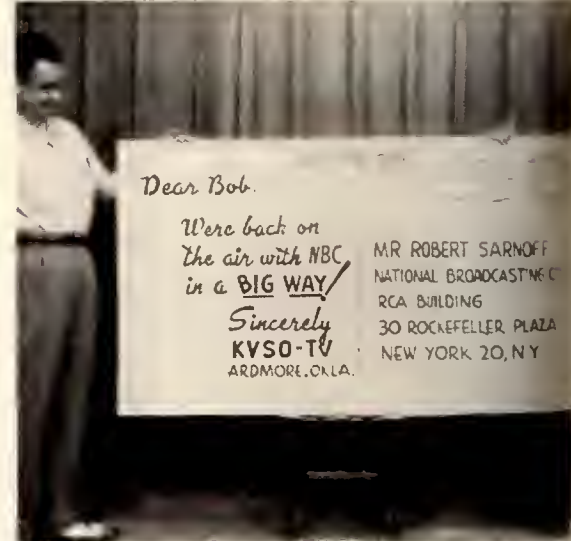 Dear Bob.
We're back on
the air with NBC
in a BIG WAY!
Sincerely
KVSO-TV
ARDMORE, OKLA.
MR ROBERT SARNOFF
NATIONAL BROADCASTING C
RCA BUILDING
30 ROCKEFELLER PLAZA
NEW YORK 20, NY